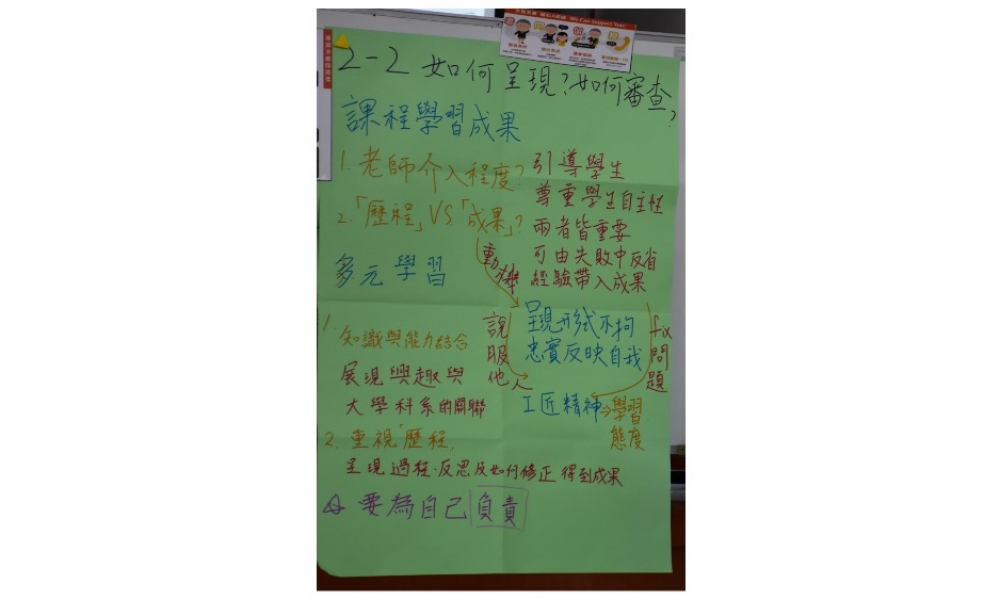 We Can Support You!
2-2 如何呈現?如何審查?
課程學習成果
1. 老師介入程度?
引導學生
尊重學生自主性
2.「歷程」VS「成果」?
兩者皆重要
可由失敗中反省
經驗帶入成果
動機
多元學習
呈現形式不拘
忠實反映自我
說服他人
fix問題
工匠精神→學習態度
1. 知識與能力結合
展現興趣與
大學科系的關聯
2. 重視"歷程"
呈現過程、反思及如何修正得到成果
要為自己負責